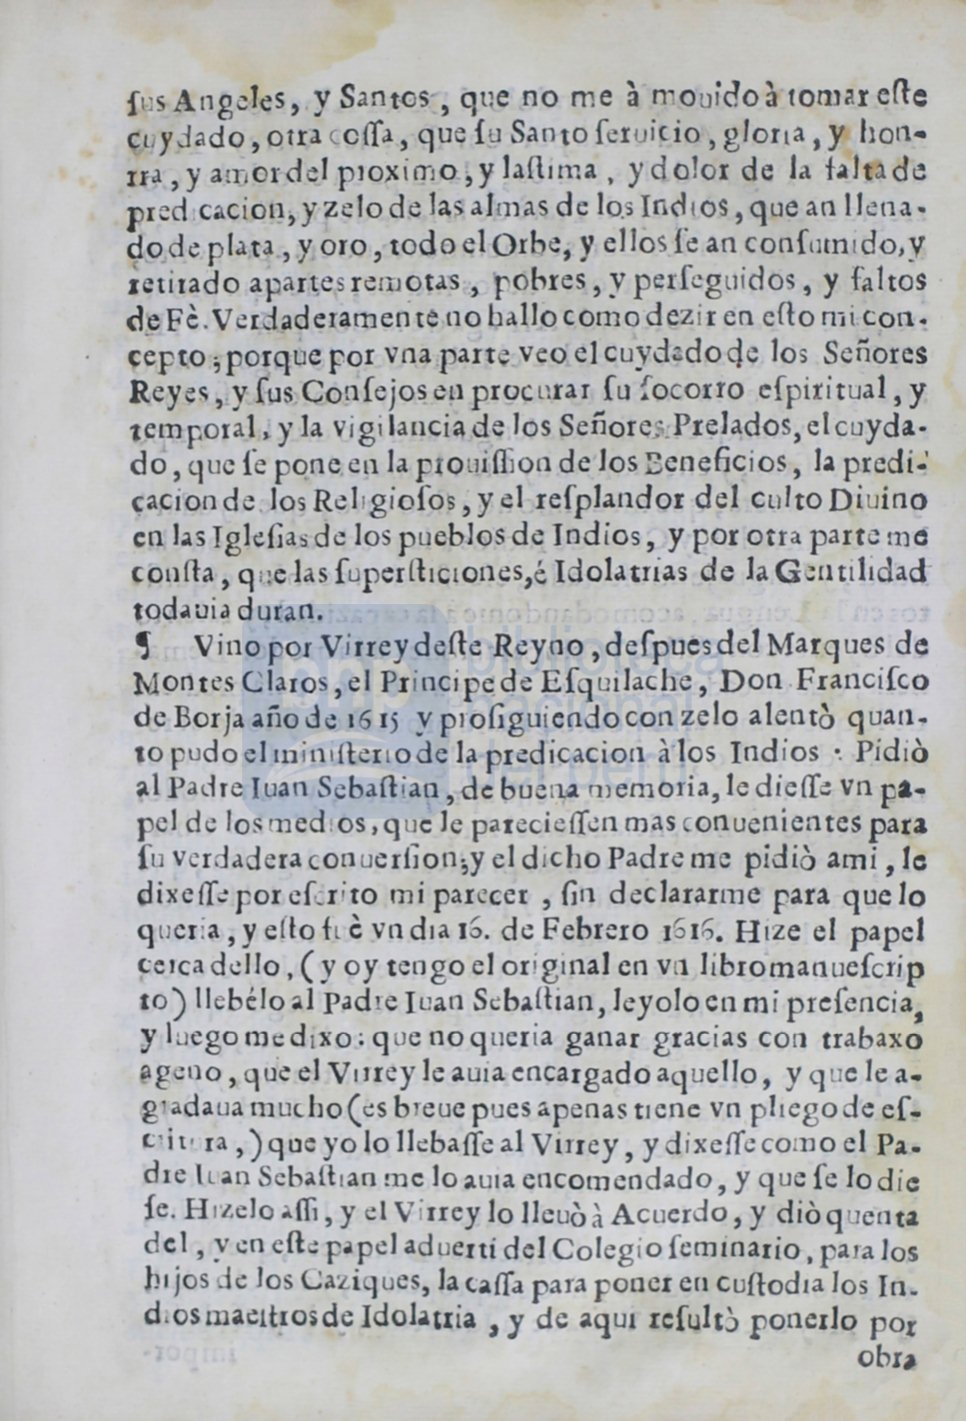 ſus Angeles, y Santos, que no me à mouido à tomar eſte
cuydado, otra coſſa, que ſu Santo ſeruicio, gloria, y hon-
rra, y amor del proximo, y laſtima, y dolor de la falta de
predicacion, y zelo de las almas de los Indios, que an llena-
do de plata, y oro, todo el Orbe, y ellos ſe an conſumido, y
retirado apartes remotas, pobres, y perſeguidos, y faltos
de Fè. Verdaderamente no hallo como dezir en eſto mi con-
cepto; porque por vna parte veo el cuydado de los Señores
Reyes, y ſus Conſejos en procurar ſu ſocorro eſpiritual, y
temporal, y la vigilancia de los Señores Prelados, el cuyda-
do, que ſe pone en la prouiſſion de los Beneficios, la predi-
cacion de los Religioſos, y el reſplandor del culto Diuino
en las Igleſias de los pueblos de Indios, y por otra parte me
conſta, que las ſuperſticiones, é Idolatrias de la Gentilidad
todauia duran.
¶ Vino por Virrey deſte Reyno, deſpues del Marques de
Montes Claros, el Principe de Eſquilache, Don Franciſco
de Borja año de 1615 y proſiguiendo con zelo alentò quan-
to pudo el miniſterio de la predicacion à los Indios : Pidiò
al Padre Iuan Sebaſtian, de buena memoria, le dieſſe vn pa-
pel de los medios, que le parecieſſen mas conuenientes para
ſu verdadera conuerſion; y el dicho Padre me pidiò ami, le
dixeſſe por eſcrito mi parecer, ſin declararme para que lo
queria, y eſto fuè vn dia 16. de Febrero 1616. Hize el papel
cerca dello, (y oy tengo el original en vn libro manueſcrip
to) llebélo al Padre Iuan Sebaſtian, leyolo en mi preſencia,
y luego me dixo: que no queria ganar gracias con trabaxo
ageno, que el Virrey le auia encargado aquello, y que le a-
gradaua mucho (es breue pues apenas tiene vn pliego de eſ-
critura,) que yo lo llebaſſe al Virrey, y dixeſſe como el Pa-
dre Iuan Sebaſtian me lo auia encomendado, y que ſe lo die
ſe. Hizelo aſſi, y el Virrey lo lleuò à Acuerdo, y diò quenta
del, y en eſte papel aduerti del Colegio ſeminario, para los
hijos de los Caziques, la caſſa para poner en cuſtodia los In-
dios maeſtros de Idolatria, y de aqui reſultò ponerlo por
obra
biblioteca
nacional
del perú